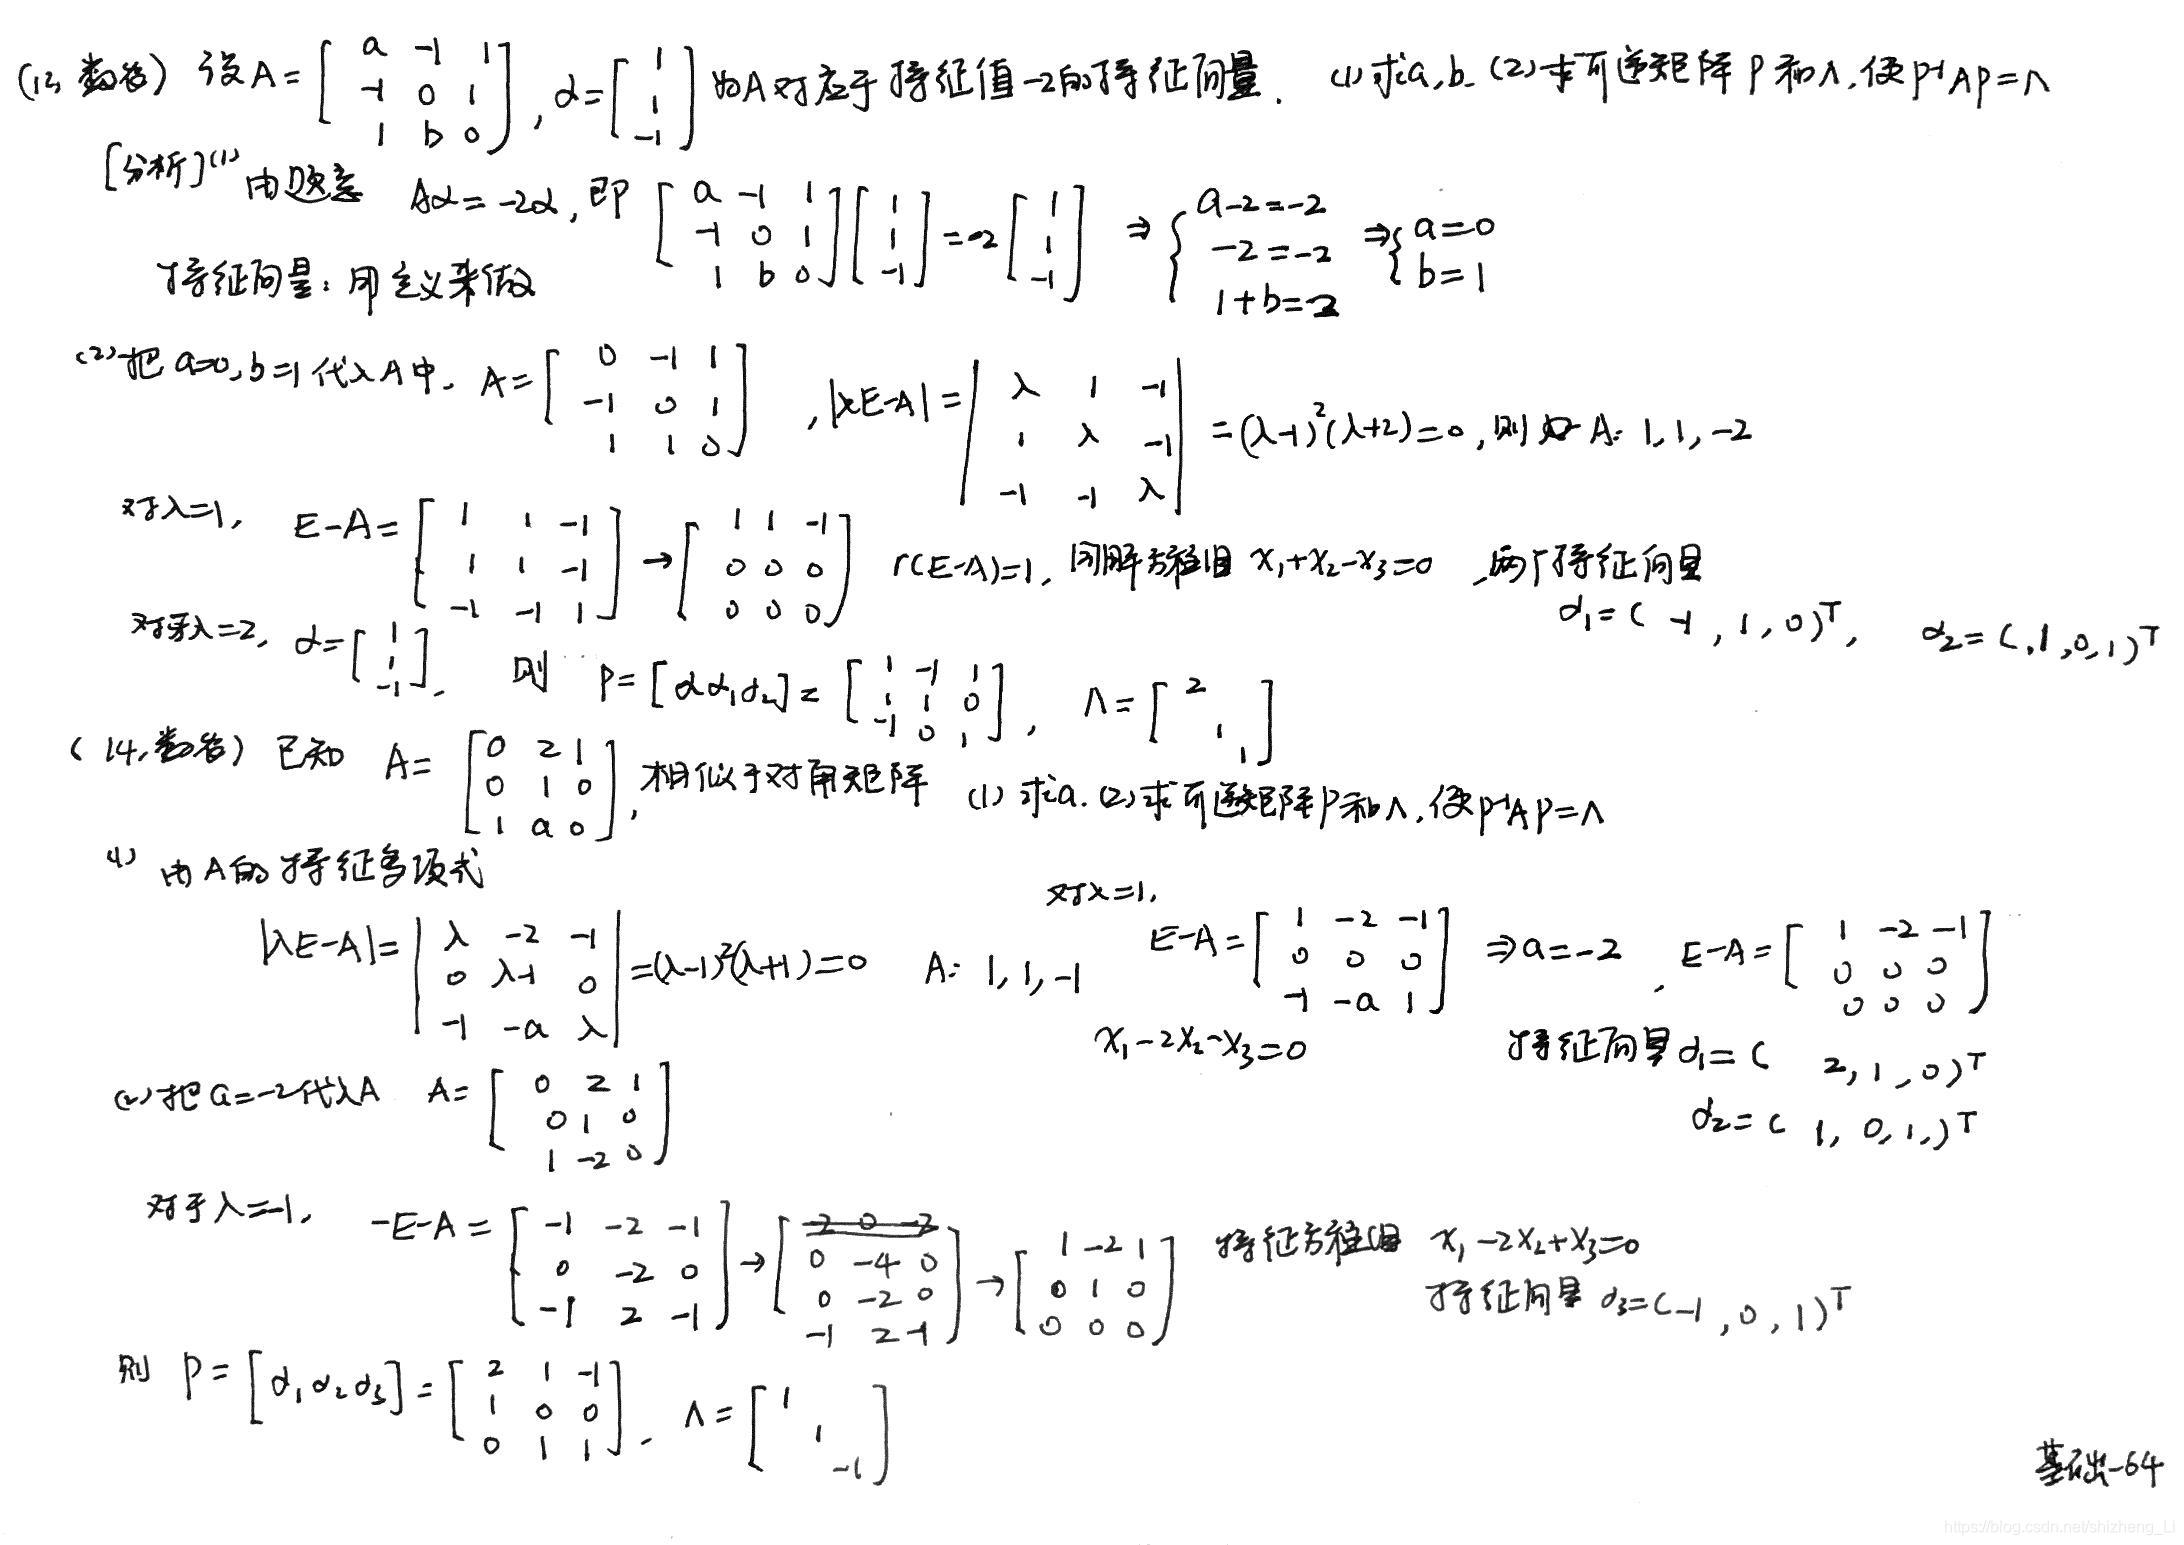 (12, 数农) 设 A = [a -1 1; -1 0 1; 1 b 0], α = [1; 1; -1] 为A对应于特征值-2的特征向量. (1) 求a, b. (2) 求可逆矩阵 P 和Λ, 使P⁻¹AP=Λ
[分析] (1) 由题意 Aα = -2α, 即 [a -1 1; -1 0 1; 1 b 0] [1; 1; -1] = -2 [1; 1; -1] ⇒ { a-2=-2; -2=-2; 1+b=2 ⇒ { a=0; b=1
特征向量: 用定义来做
(2) 把 a=0, b=1 代入A中. A = [0 -1 1; -1 0 1; 1 1 0], |λE-A| = |λ 1 -1; 1 λ -1; -1 -1 λ| = (λ-1)²(λ+2)=0, 则 A: 1, 1, -2
对λ=1, E-A = [1 1 -1; 1 1 -1; -1 -1 1] → [1 1 -1; 0 0 0; 0 0 0] r(E-A)=1, 同解方程组 x₁+x₂-x₃=0, 两个特征向量
α₁=( -1, 1, 0)ᵀ, α₂=(1, 0, 1)ᵀ
对于λ=2, α = [1; 1; -1]. 则 P = [α α₁ α₂] = [1 -1 1; 1 1 0; -1 0 1], Λ = [2; 1; 1]
(14, 数农) 已知 A = [0 2 1; 0 1 0; 1 a 0], 相似于对角矩阵 (1) 求a. (2) 求可逆矩阵P和Λ, 使P⁻¹AP=Λ
(1) 由A的特征多项式
|λE-A| = |λ -2 -1; 0 λ-1 0; -1 -a λ| = (λ-1)²(λ+1)=0 A: 1, 1, -1
对λ=1, E-A = [1 -2 -1; 0 0 0; -1 -a 1] ⇒ a=-2, E-A = [1 -2 -1; 0 0 0; 0 0 0]
x₁-2x₂-x₃=0 特征向量 α₁=( 2, 1, 0)ᵀ
α₂=( 1, 0, 1,)ᵀ
(2) 把 a=-2代入A A = [0 2 1; 0 1 0; 1 -2 0]
对于λ=-1, -E-A = [-1 -2 -1; 0 -2 0; -1 2 -1] → [0 -4 0; 0 -2 0; -1 2 -1] → [1 -2 1; 0 1 0; 0 0 0] 特征方程组 x₁-2x₂+x₃=0
特征向量 α₃=(-1, 0, 1)ᵀ
则 P = [α₁ α₂ α₃] = [2 1 -1; 1 0 0; 0 1 1]. Λ = [1; 1; -1]
基础-64
https://blog.csdn.net/shizheng_Li